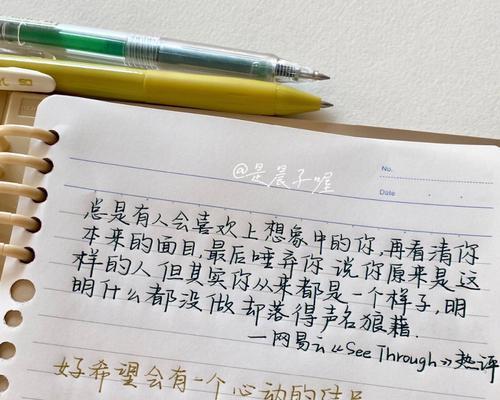 @是晨子喔
No.
Date
总是有人会喜欢上想象中的你,再看清你
本来的面目,最后唾弃你 说你原来是这
样的人 但其实你从来都是一个样子,明
明什么都没做 却落得声名狼藉.
—网易云《See Through》热评
好希望会有一个心动的结局